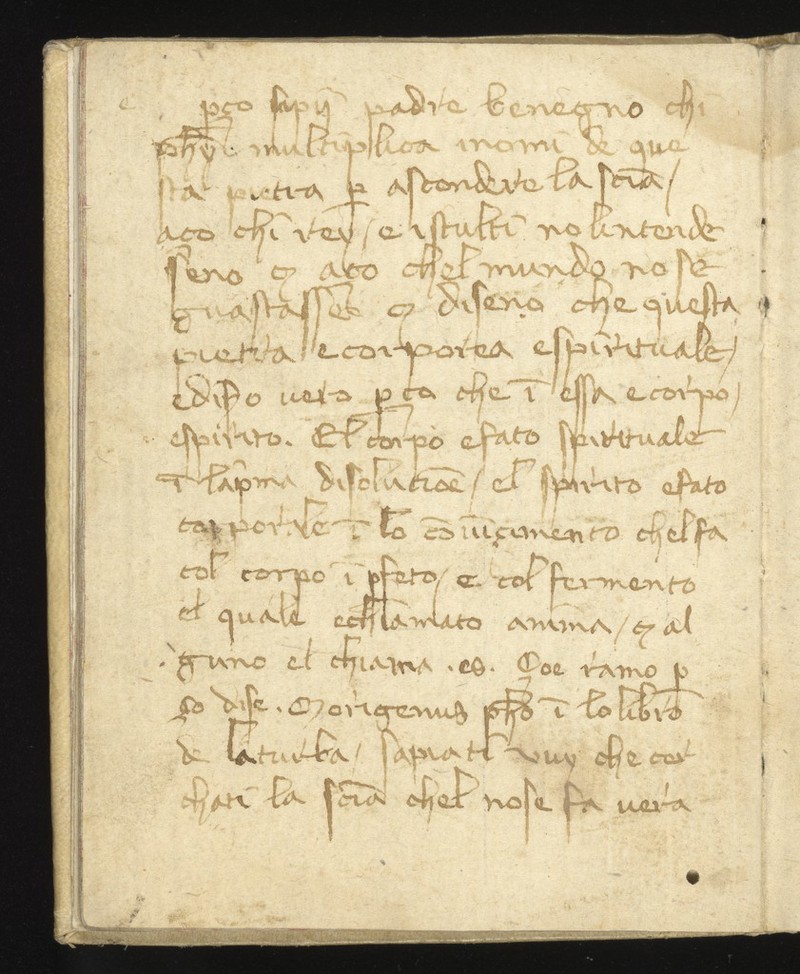 pço sapiı̄ padre benegno chi
phȳ multiplica inomi de que
sta pietra ꝑ ascondere la sciā /
aço chi rey / e istulti nolintende
seno ⁊ aço chel mundo no se
guastasse ⁊ diseno che questa
pietra ecorporea espirituale /
e diso vero ꝑço che ī essa ecorpo /
espirito . El corpo efato spirituale
ī la pͥma disolutiōe / el spirito efato
corporale ī lo cōuīçimento chelfa
col corpo ī pfeto / e col fermento
el quale echiamato anima / ⁊ al
guno el chiama .es. Çoe ramo ꝑ
ço dise . Morigenus pho ī lo libro
de la turba / sapiati vuy che cer
chati la sciā chel no se fa vera